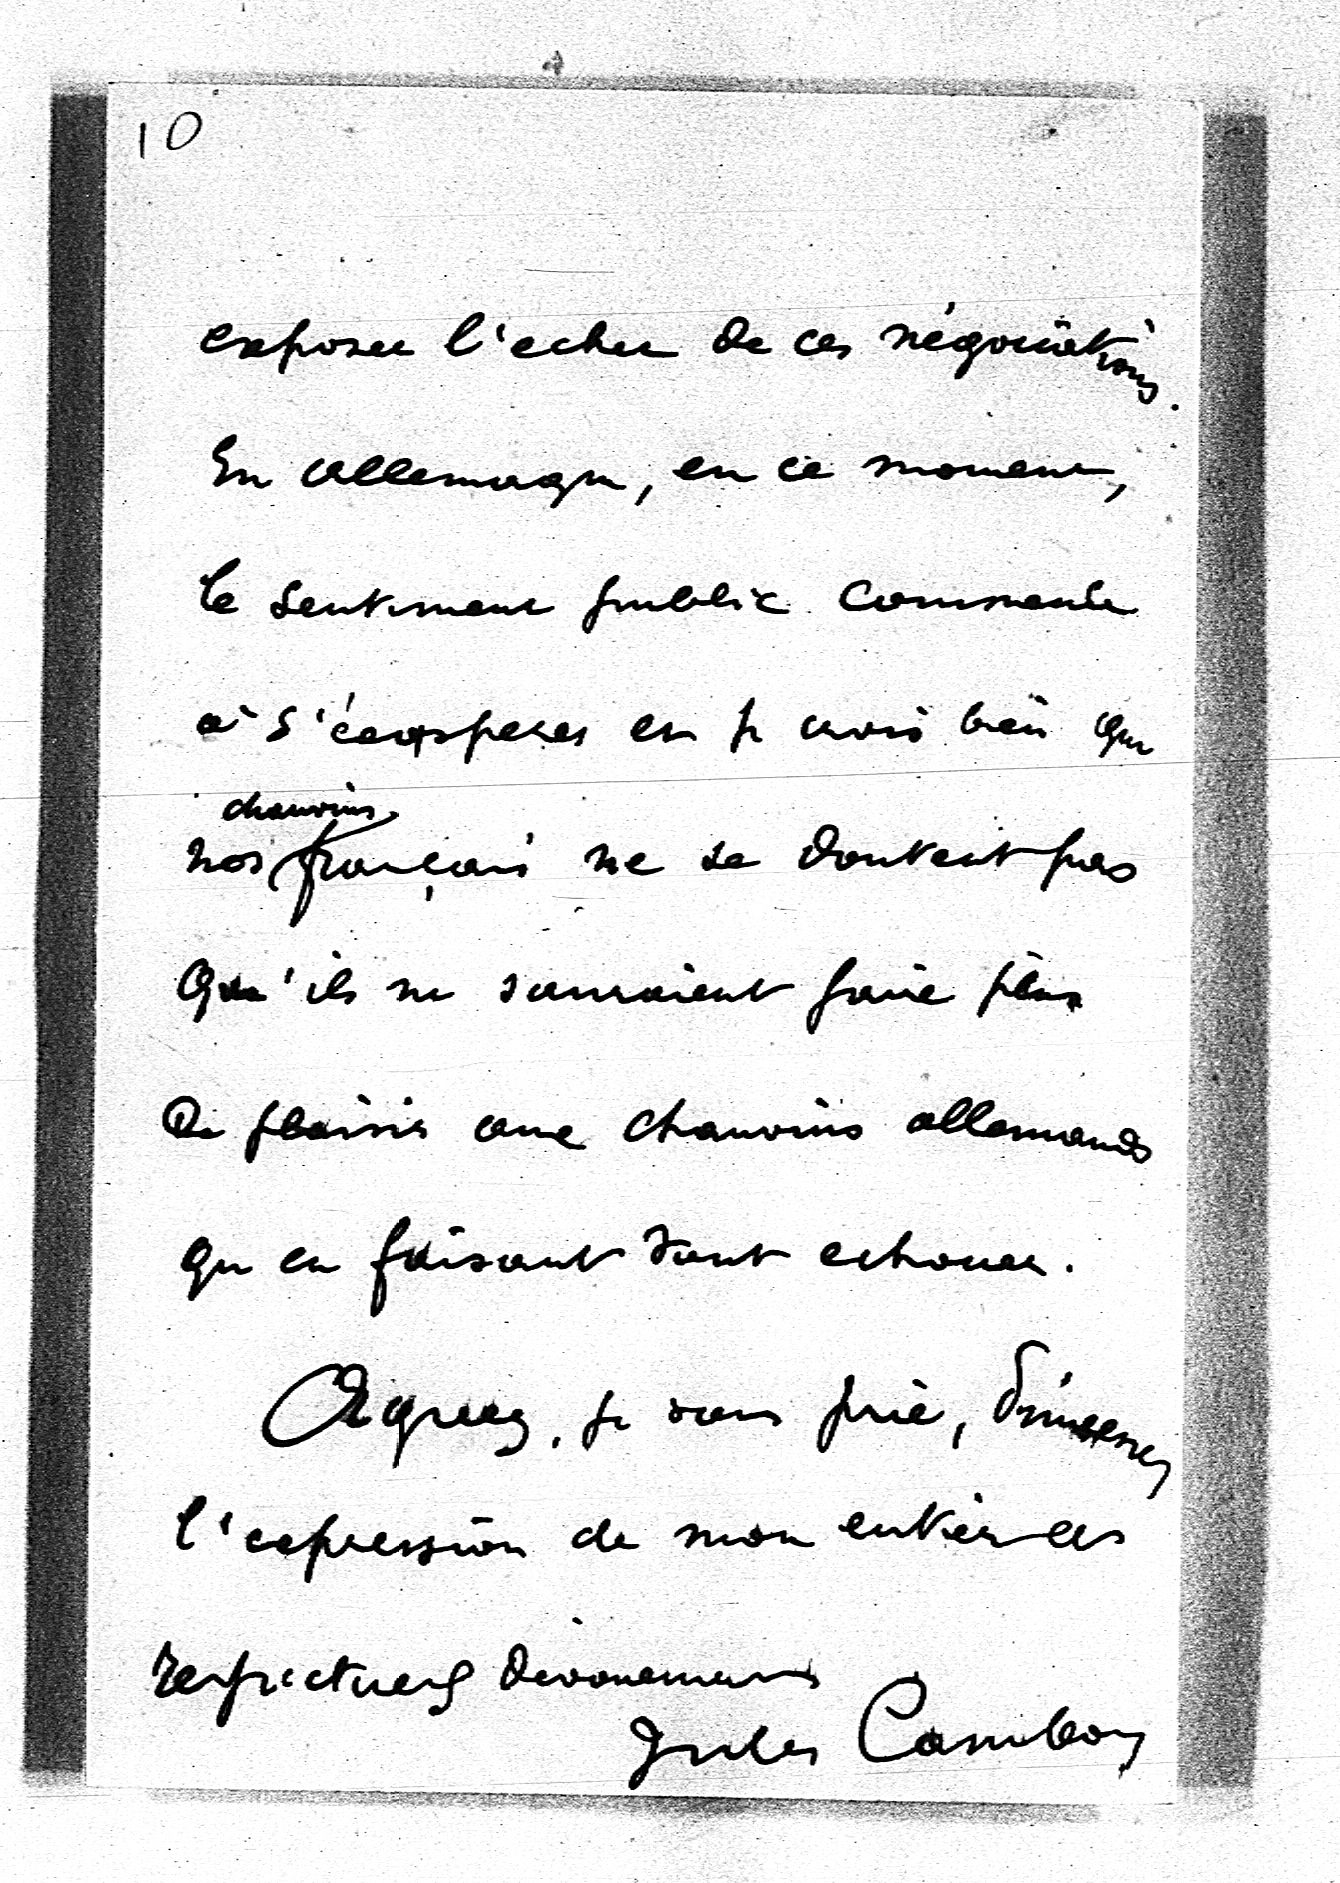 10
exposer l'echec de ces négociations.
En allemagne, en ce moment,
le sentiment public commence
à s'éxasperer et je crois bien que
chauvins
nos français ne se doutent pas
Qu'ils ne sauraient faire plus
De plaisir aux chauvins allemands
qu'en faisant tout echouer.
Agreez, je vous prie,
l'expression de mon entier et
respectueux dévouement
Jules Cambon